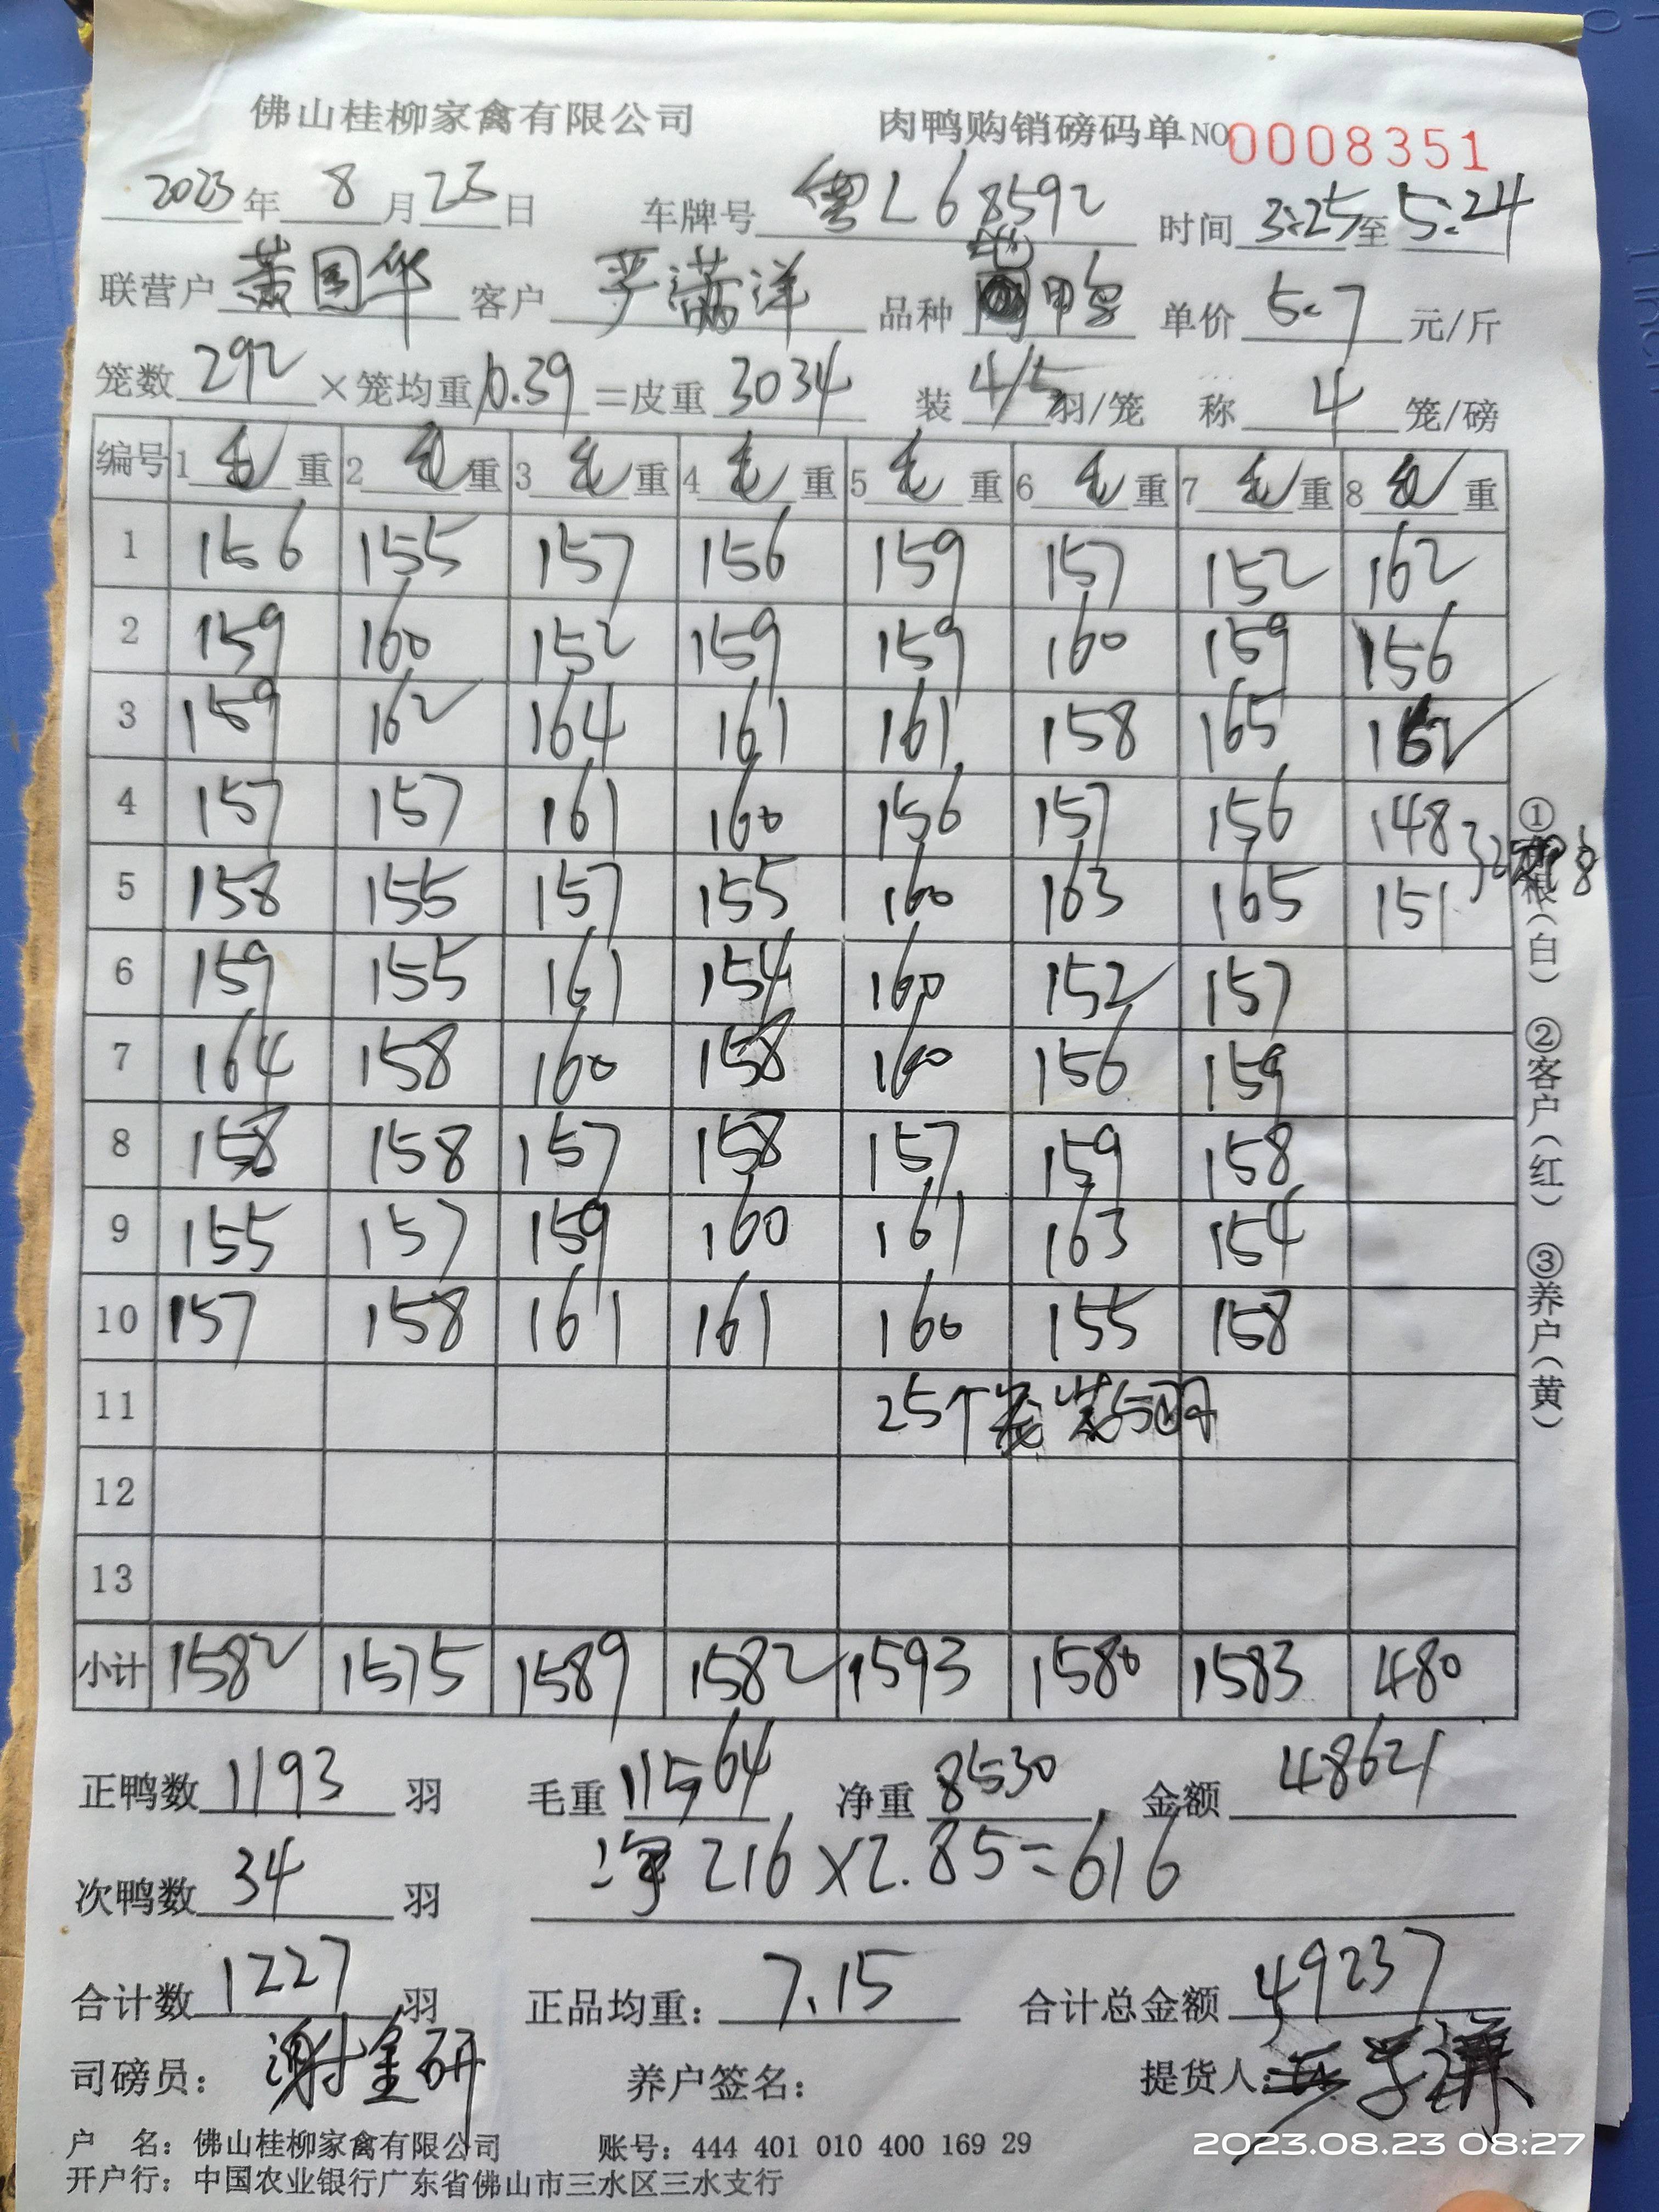 佛山桂柳家禽有限公司 肉鸭购销磅码单 NO 0008351
2023年 8月23日 车牌号 粤L68592 时间 3:25至5:24
联营户 萧国华 客户 严满洋 品种 鸭 单价 5.7 元/斤
笼数 292 ×笼均重 10.39 =皮重 3034 装 4/5 羽/笼 称 4 笼/磅
编号 1 毛 重 2 毛 重 3 毛 重 4 毛 重 5 毛 重 6 毛 重 7 毛 重 8 毛 重
1 156 155 157 156 159 157 152 162
2 159 160 152 159 159 160 159 156
3 159 162 164 161 161 158 165 162
4 157 157 161 160 156 157 156 148
5 158 155 157 155 160 163 165 151
6 159 155 161 154 160 152 157
7 164 158 160 158 160 156 159
8 158 158 157 158 157 159 158
9 155 157 159 160 161 163 154
10 157 158 161 161 160 155 158
11 25个笼装5羽
12
13
小计 1582 1575 1589 1582 1593 1580 1583 480
①根(白) ②客户(红) ③养户(黄)
正鸭数 1193 羽 毛重 11564 净重 8530 金额 48621
次鸭数 34 羽 净 216×2.85=616
合计数 1227 羽 正品均重: 7.15 合计总金额 49237
司磅员: 谢金研 养户签名: 提货人:
户 名: 佛山桂柳家禽有限公司 账号: 444 401 010 400 169 29
开户行: 中国农业银行广东省佛山市三水区三水支行
2023.08.23 08:27